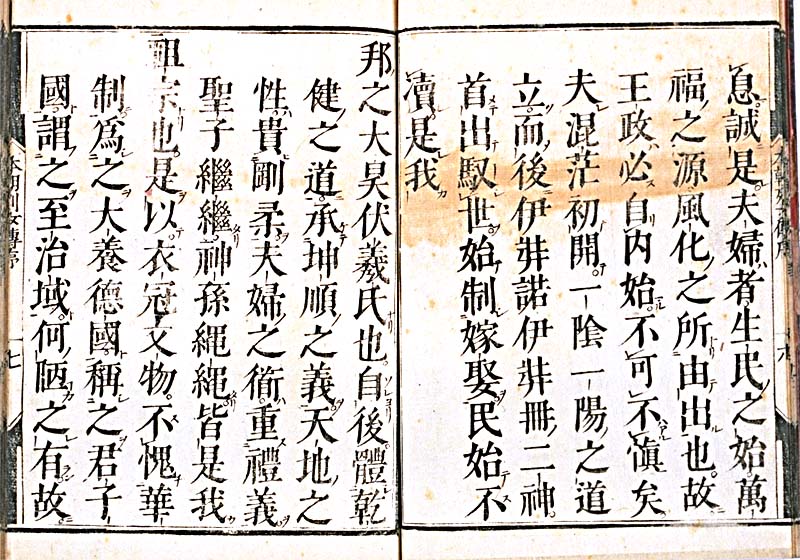 息誠是夫婦者生民之始萬
福之源風化之所由出也故
王政必自内始不可不愼矣
夫混茫初開一陰一陽之道
立而後伊弉諾伊弉冊二神
首出馭世始制嫁娶民始不
瀆是我
邦之大昊伏羲氏也自後體乾
健之道承坤順之義天地之
性貴剛柔夫婦之衜重禮義
聖子繼繼神孫繩繩皆是我
祖宗也是以衣冠文物不愧華
制爲之大養德國稱之君子
國謂之至治域何陋之有故
本朝列女傳序
七